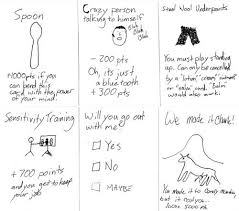 Spoon
+1000 pts if you
can bend this
card with the power
of your mind.
Crazy person
talking to himself
blah
blah
blah
- 200 pts
Oh, its just
a blue tooth
+ 300 pts
Steel Wool Underpants
You must play standing
up. Can only be cancelled
by a "lotion" "cream" "ointment"
or "salve" card. "Balm"
would also work.
Sensitivity Training
+700 points
and you get to keep
your job
Will you go out
with me?
Yes
No
MAYBE
We made it Clank!
You made it to Candy mountain,
but it
lose 5000 pts